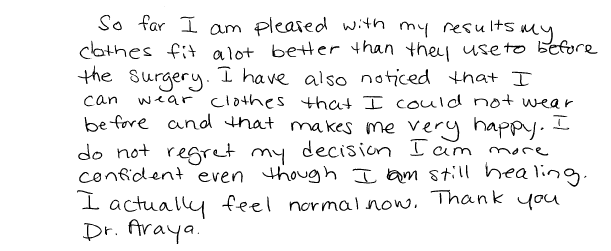 So far I am pleased with my results my
clothes fit alot better than they use to before
the surgery. I have also noticed that I
can wear clothes that I could not wear
before and that makes me very happy. I
do not regret my decision I am more
confident even though I am still healing.
I actually feel normal now. Thank you
Dr. Araya.